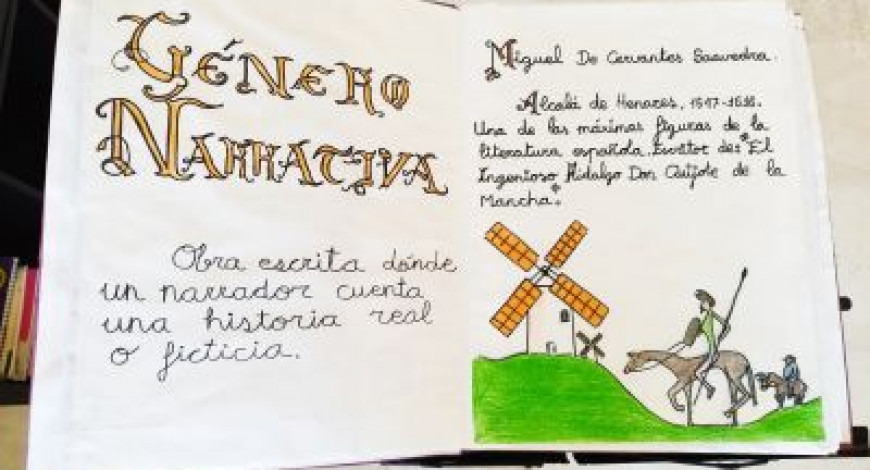 GÉNERO
NARRATIVA
Obra escrita dónde
un narrador cuenta
una historia real
o ficticia.
Miguel De Cervantes Saavedra.
Alcalá de Henares, 1547-1616.
Una de las máximas figuras de la
literatura española. Escritor de: "El
Ingenioso Hidalgo Don Quijote de la
Mancha".